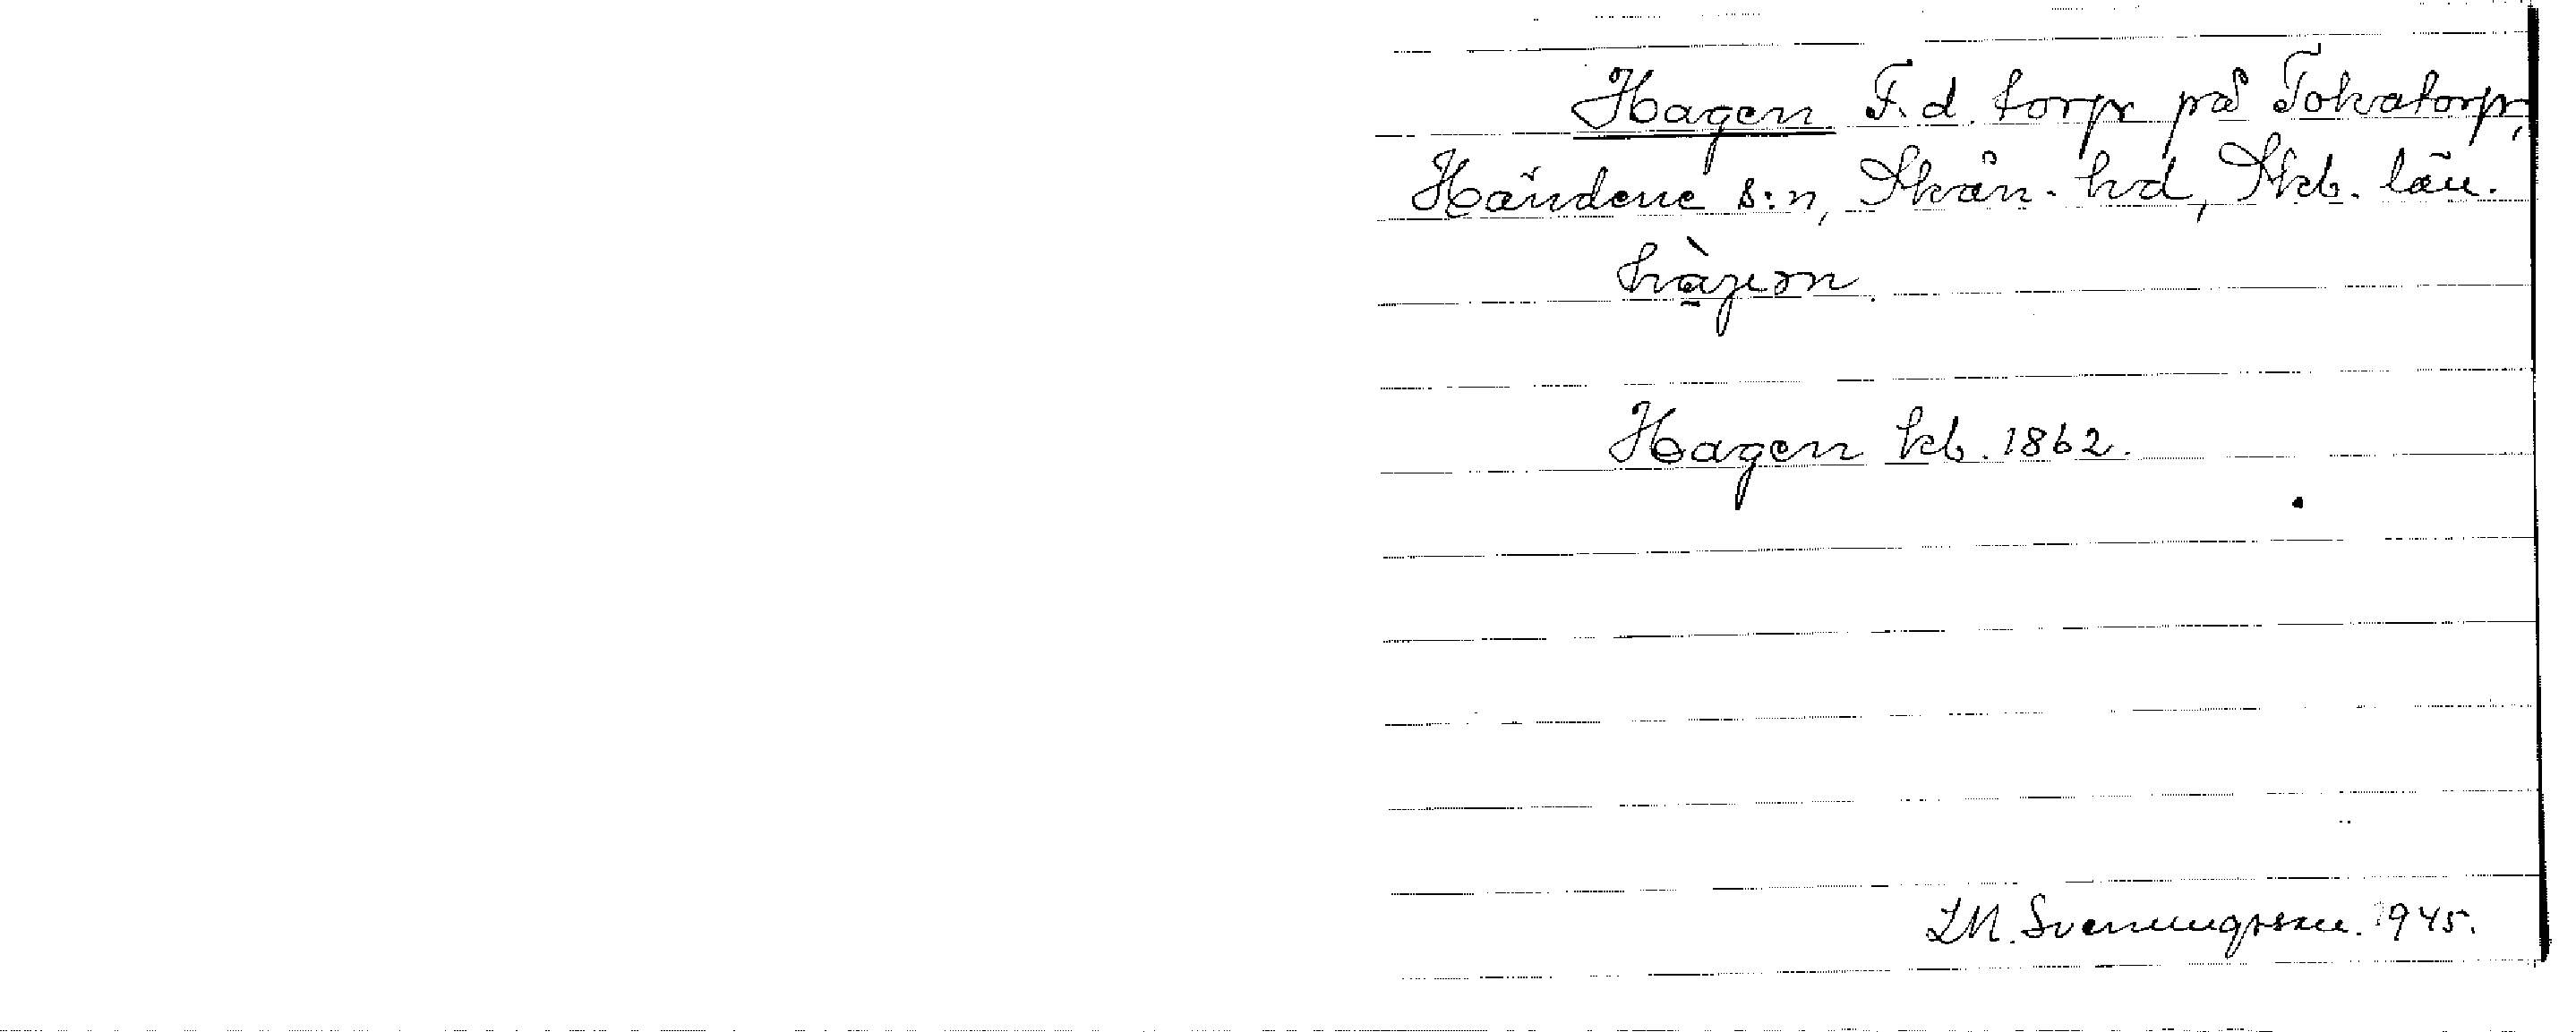 Hagen F.d. torp på Tokatorp,
Händene s:n, Skån. hd, Skb. län.
hàgen.
Hagen kb. 1862.
LM. Svenungsson. 1945.